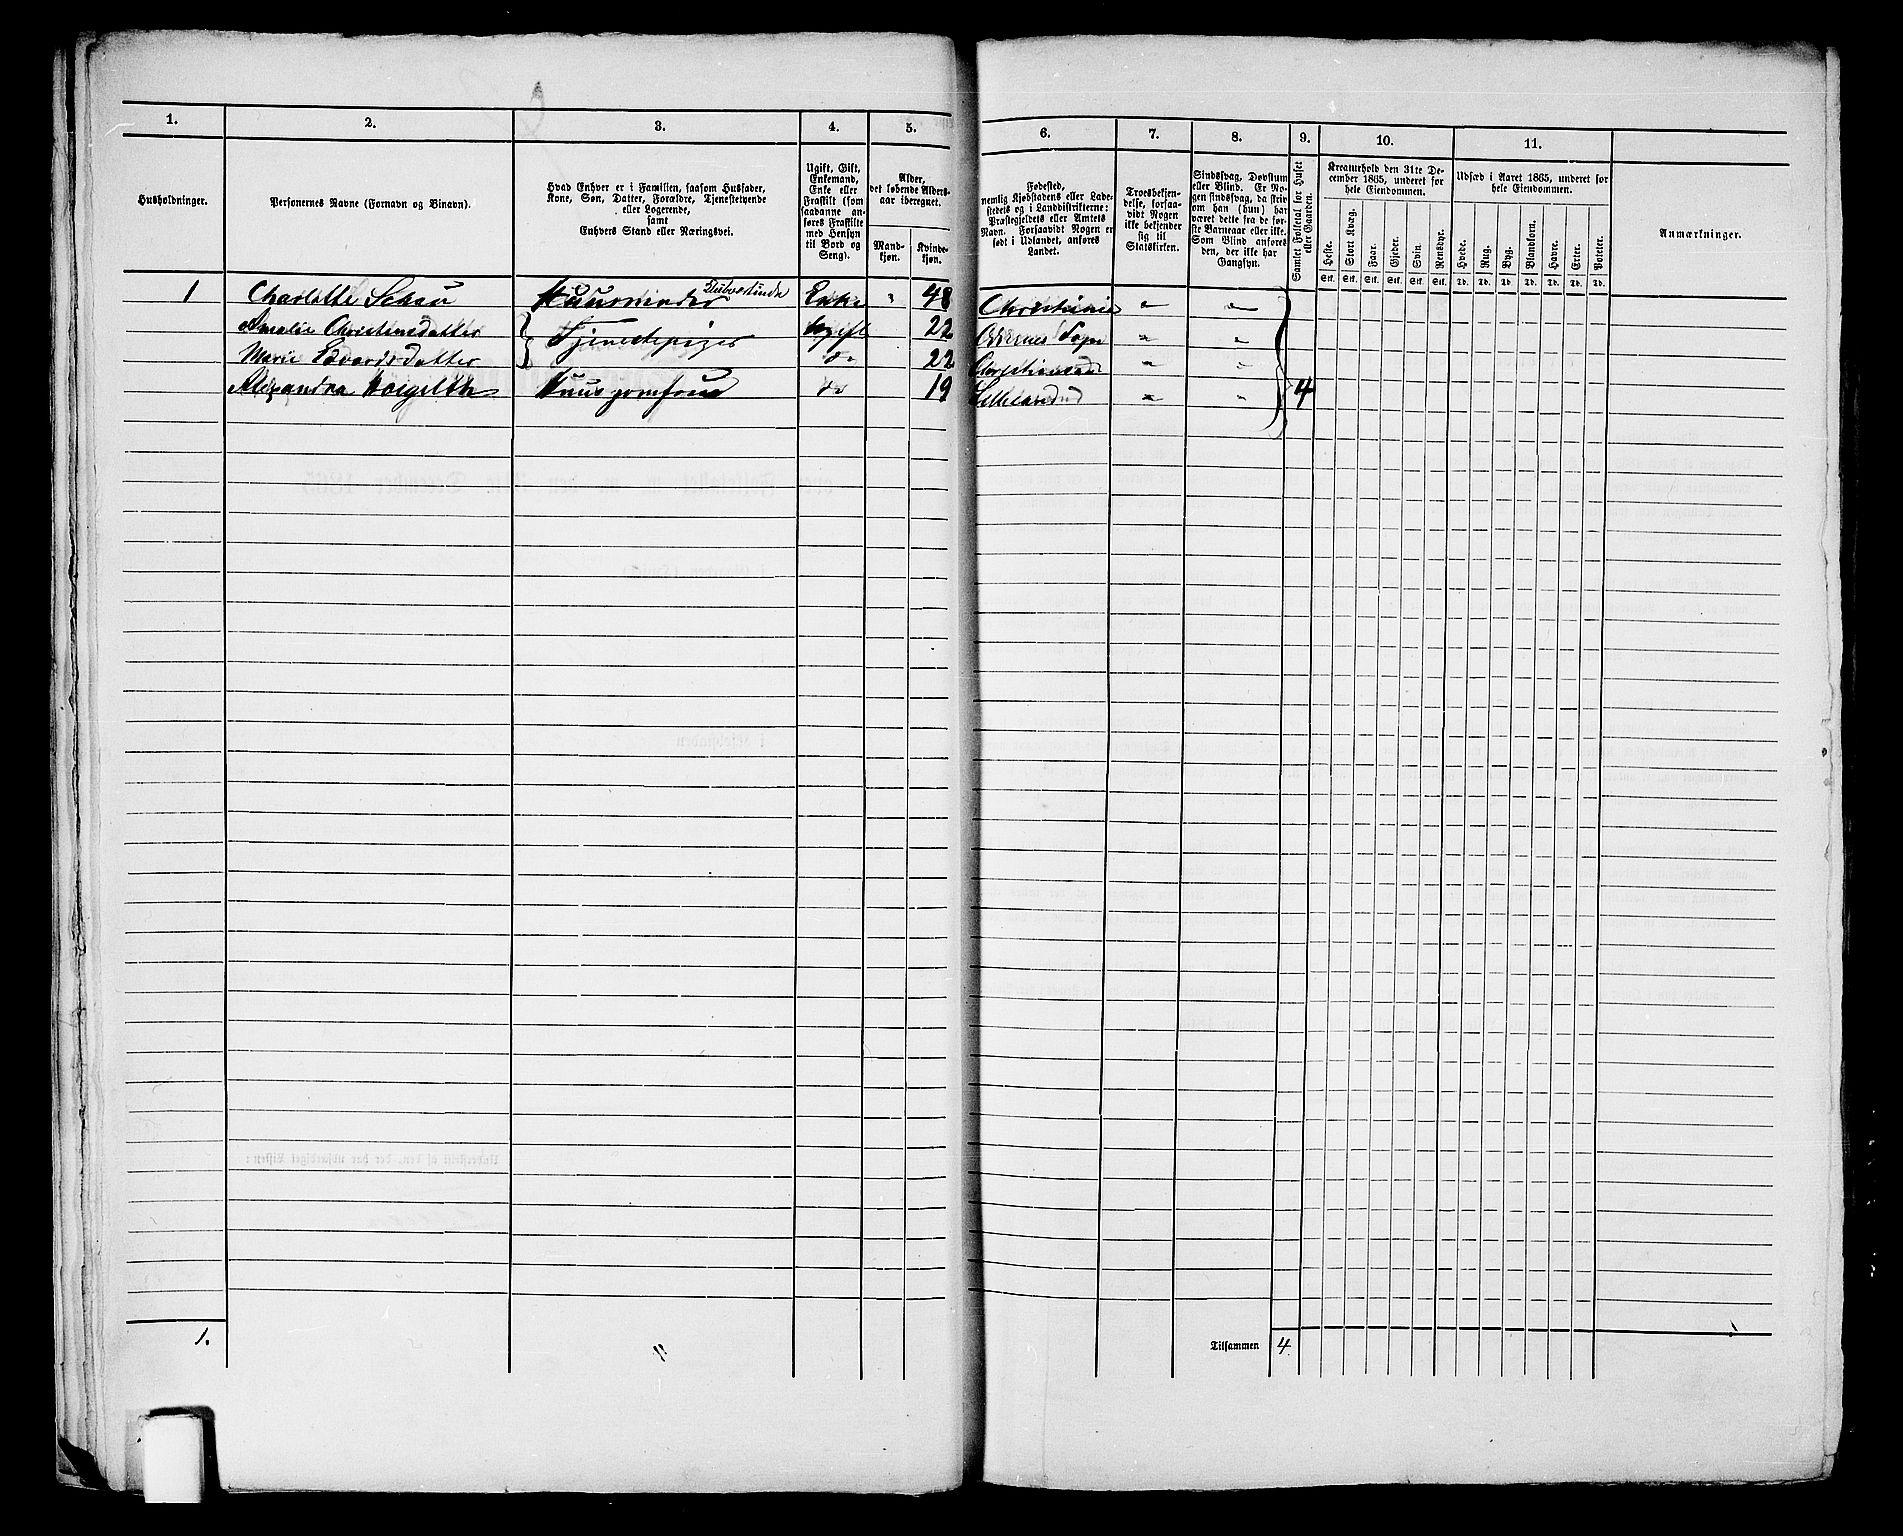 1.
2.
3.
4.
5.
6.
7.
8.
9.
10.
11.
Husholdninger.
Personernes Navne (Fornavn og Binavn).
Hvad Enhver er i Familien, saasom Husfader,
Kone, Søn, Datter, Forældre, Tjenestetyende
eller Logerende,
samt
Enhvers Stand eller Næringsvei.
Ugift, Gift,
Enkemand,
Enke eller
Fraskilt (som
saadanne an-
føres Fraskilte
med Hensyn
til Bord og
Seng).
Alder,
det løbende Alders-
aar iberegnet.
Mand-
kjøn.
Kvinde-
kjøn.
Fødested,
nemlig Kjøbstadens eller Lade-
stedets og i Landdistrikterne:
Præstegjeldets eller Amtets
Navn. Forsaavidt Nogen er
født i Udlandet, anføres
Landet.
Troesbekjen-
delse, forsaa-
vidt Nogen
ikke bekjender
sig til
Statskirken.
Sindssvag, Døvstum
eller Blind. Er No-
gen sindssvag, da skriv
om han (hun) har
været dette fra de før-
ste Barneaar eller ikke.
Som Blind anføres
den, der ikke har
Gangsyn.
Samlet Folketal for Huset
eller Gaarden.
Kreaturhold den 31te De-
cember 1865, underet for
hele Eiendommen.
Heste.
Stort Kvæg.
Faar.
Gjeder.
Svin.
Rensdyr.
Stk. Stk. Stk. Stk. Stk. Stk.
Udsæd i Aaret 1865, underet for
hele Eiendommen.
Hvede.
Rug.
Byg.
Blandkorn.
Havre.
Erter.
Poteter.
Td. Td. Td. Td. Td. Td. Td.
Anmærkninger.
1 Charlotte Schou Enke " 48 Christiania " "
Amalie Christensdatter Tjenestepiger Ugift 22 Sogn " "
Marie Edvardsdatter do 22 Christiansand " "
Alexandra Huusjomfrue do 19 Lillesand " " 4
1.
Tilsammen 4